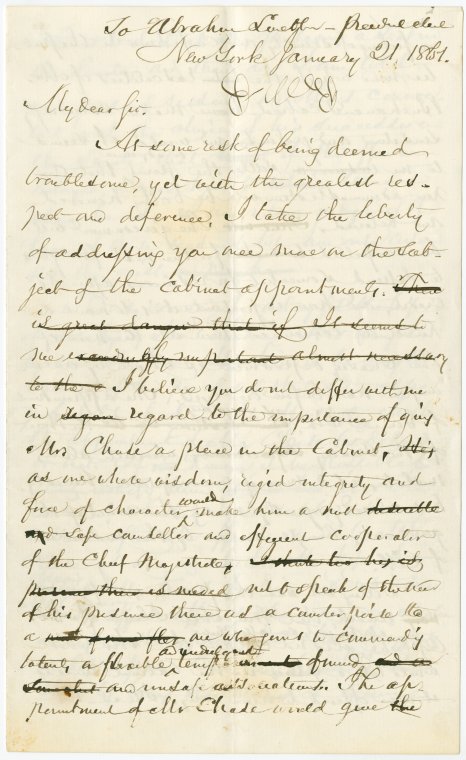 To Abraham Lincoln — President elect
New York January 21 1861.
My dear Sir.
At some risk of being deemed
troublesome, yet with the greatest res-
pect and deference, I take the liberty
of addressing you once more on the sub-
ject of the cabinet appointments. There
is great danger that if It seems to
me exceedingly important almost necessary
to the I believe you do not differ with me
in regard to the importance of giving
Mr. Chase a place in the Cabinet, His
as one whose wisdom, rigid integrity and
force of character would make him a most desirable
and safe counsellor and efficient cooperator
of the Chief Magistrate, I think too his
presence there is needed not to speak of the need
of his presence there as a counterpoise to
a one who joins to commanding
talents, a flexible and indulgent temper of mind and a
somewhat and unsafe associations. The ap-
pointment of Mr Chase would give the